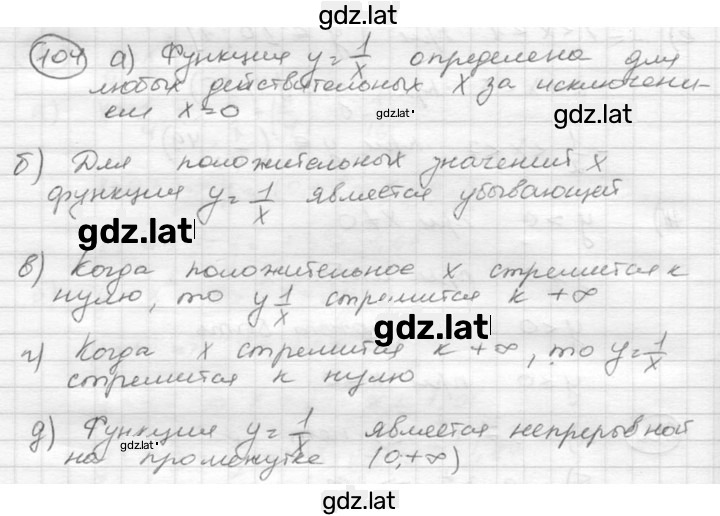 gdz.lat
104 а) Функция y = 1/x определена для
любых действительных x за исключени-
ем x = 0
gdz.lat
gdz.lat
б) Для положительных значений x
функция y = 1/x является убывающей
gdz.lat
в) Когда положительное x стремится к
нулю, то y 1/x стремится к +∞
gdz.lat
г) Когда x стремится к +∞, то y = 1/x
стремится к нулю
д) Функция y = 1/x является непрерывной
gdz.lat
на промежутке (0,+∞)
gdz.lat